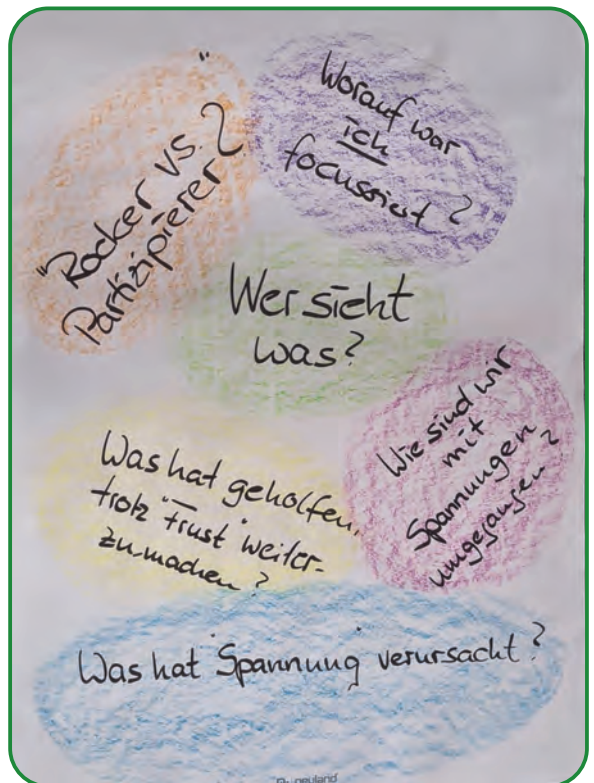 "Rocker" vs.
Partizipierer?
Worauf war
ich
focussiert?
Wer sieht
was?
Wie sind wir
mit
Spannungen
umgegangen?
Was hat geholfen,
trotz "Frust" weiter-
zumachen?
Was hat "Spannung" verursacht?
neuland